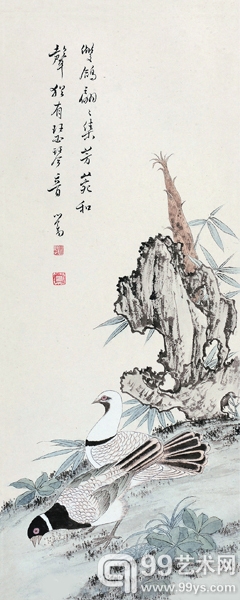 雙鴿翩翩集芳叢和
聲猶有瑟琴音
心畬
99艺术网
www.99ys.com